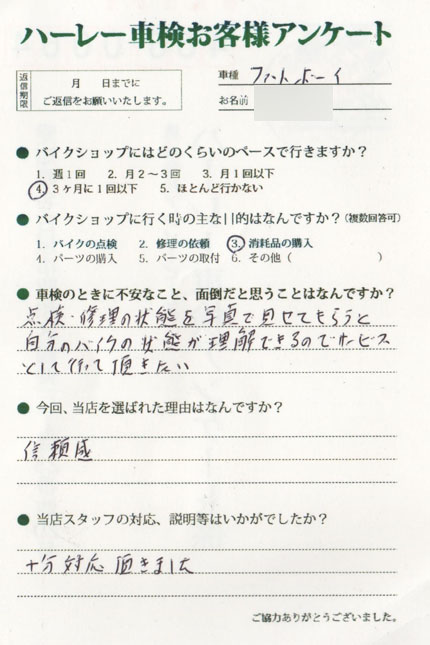 ハーレー車検お客様アンケート
返信期限
月　　日までに
ご返信をお願いいたします。
車種 ファットボーイ
お名前
● バイクショップにはどのくらいのペースで行きますか？
1. 週１回　2. 月２〜３回　3. 月１回以下
4. ３ヶ月に１回以下　5. ほとんど行かない
● バイクショップに行く時の主な目的はなんですか？(複数回答可)
1. バイクの点検　2. 修理の依頼　3. 消耗品の購入
4. パーツの購入　5. パーツの取付　6. その他（　　　　　　）
● 車検のときに不安なこと、面倒だと思うことはなんですか？
点検・修理の状態を写真で見せてもらうと
自分のバイクの状態が理解できるのでサービス
として行って頂きたい
● 今回、当店を選ばれた理由はなんですか？
信頼感
● 当店スタッフの対応、説明等はいかがでしたか？
十分対応頂きました
ご協力ありがとうございました。